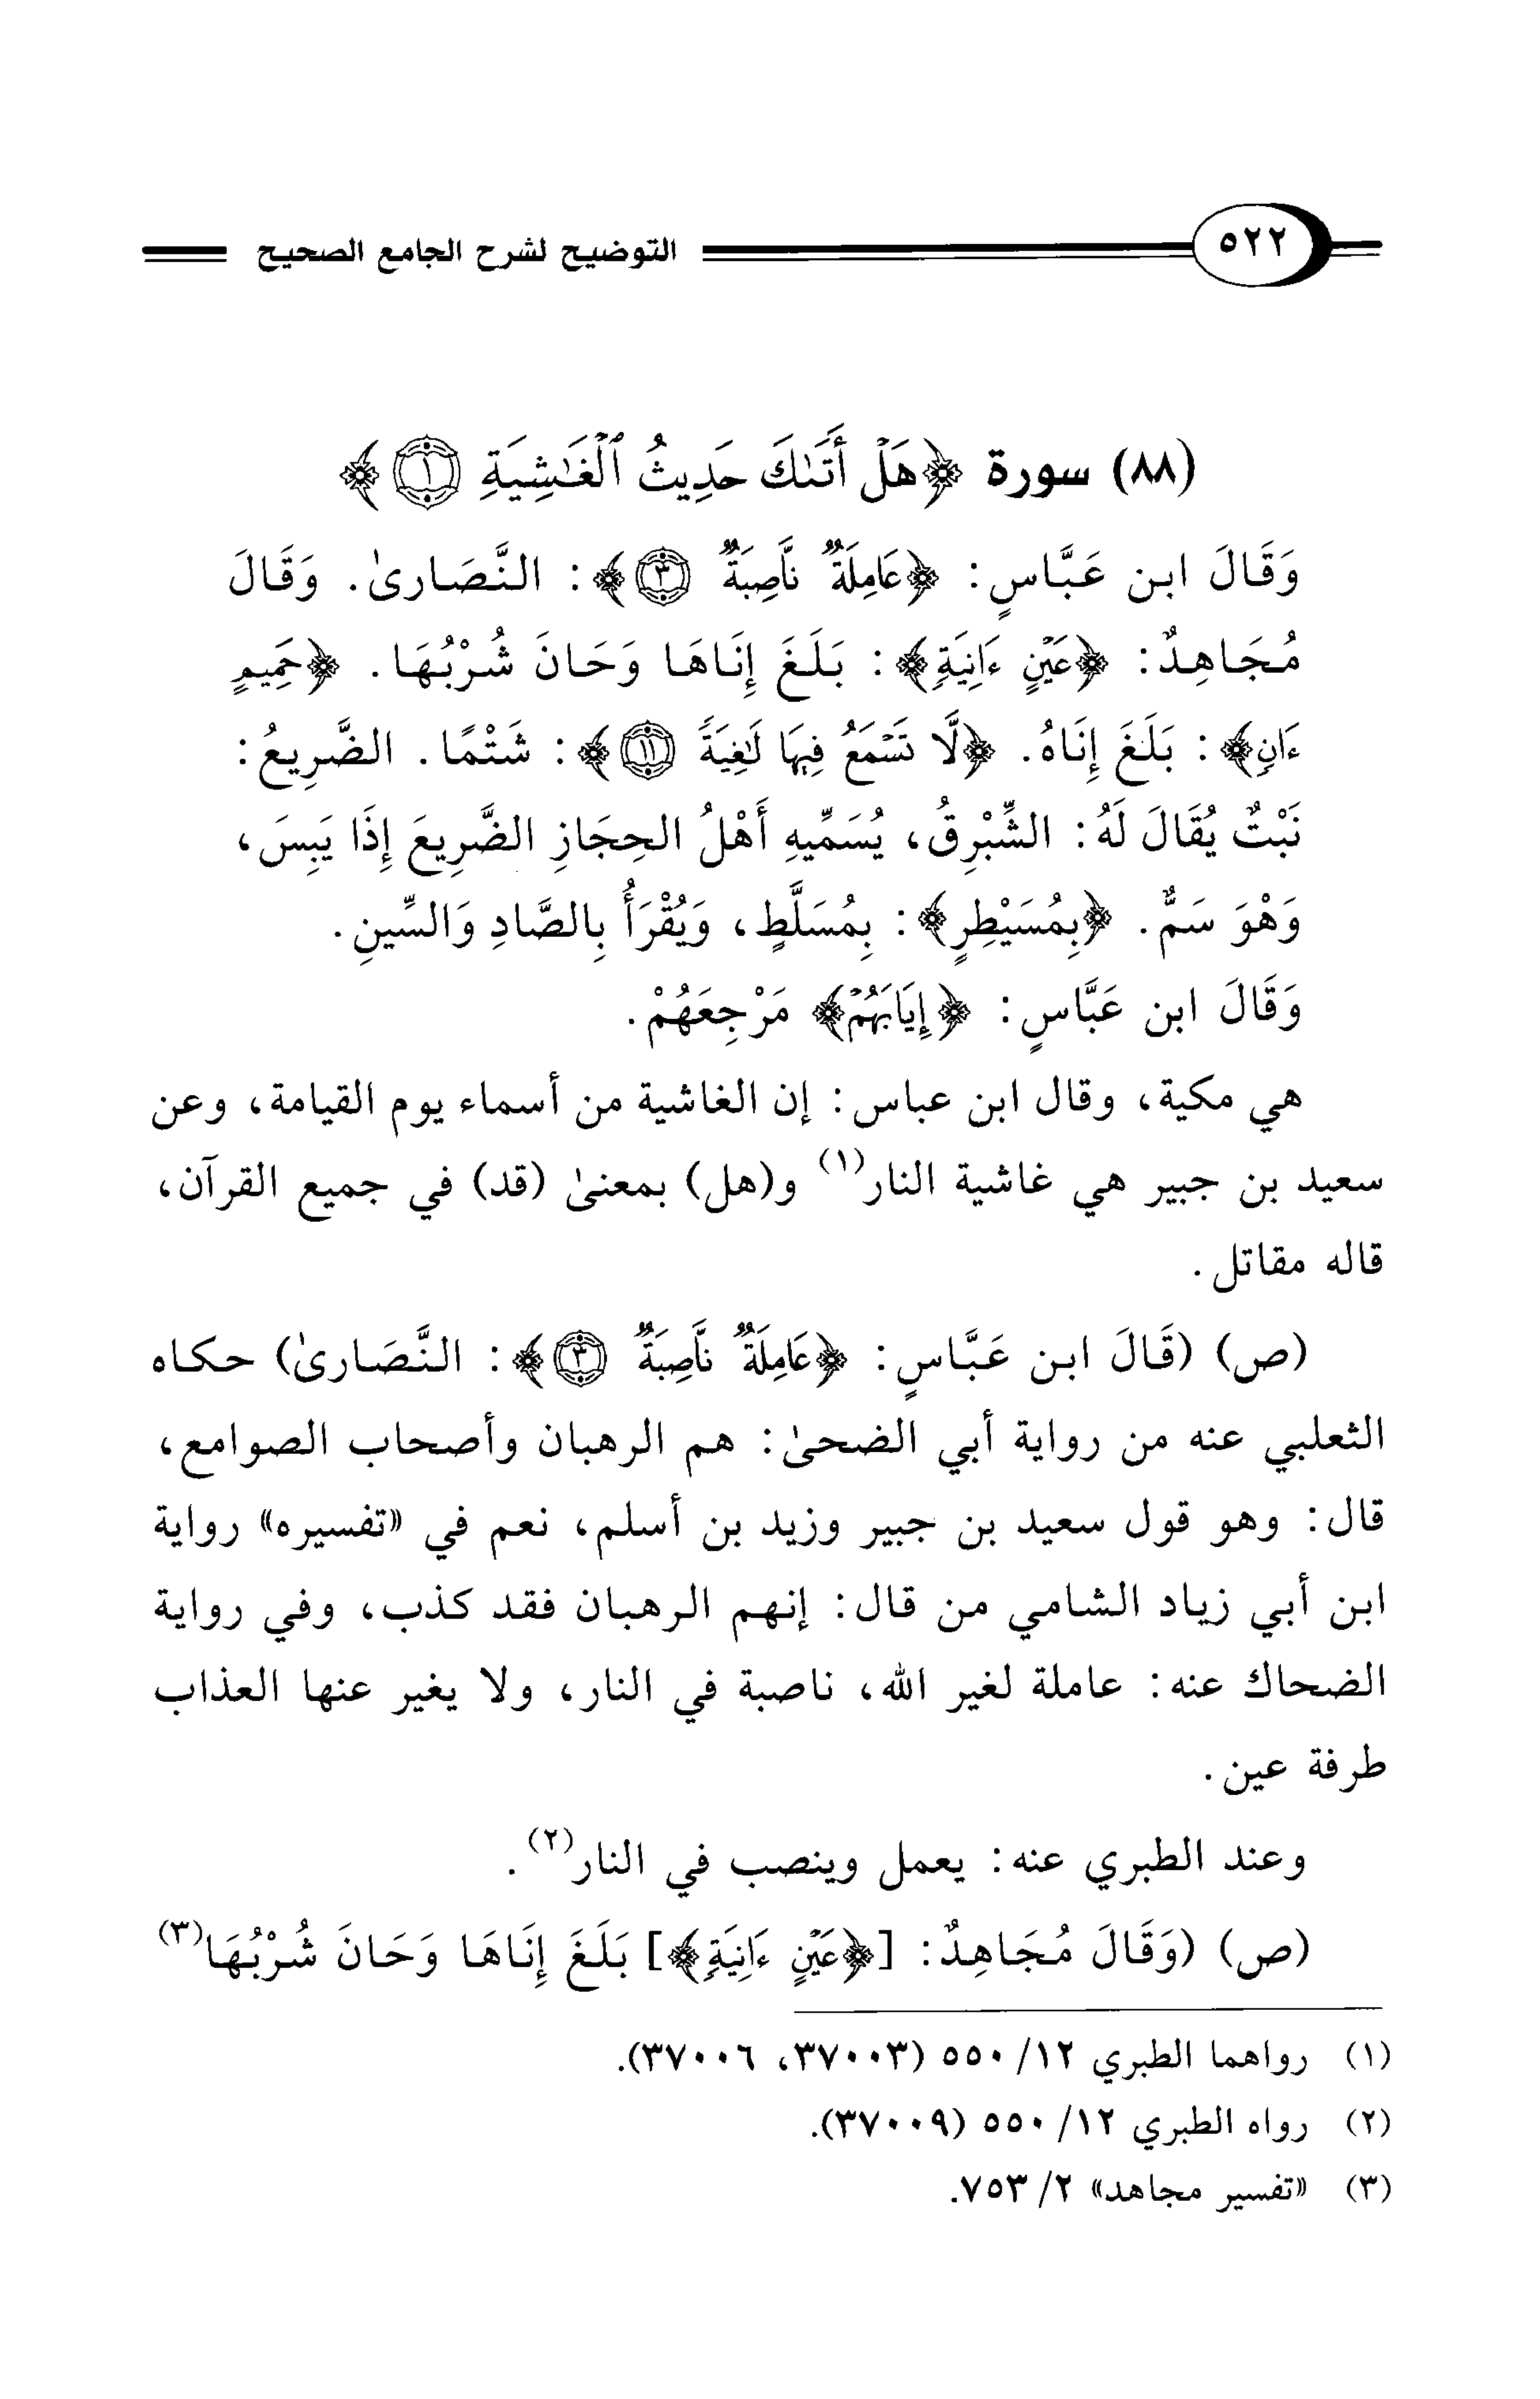 ٥٢٢
التوضيح لشرح الجامع الصحيح
(٨٨) سورة ﴿هَلْ أَتَىٰكَ حَدِيثُ ٱلْغَـٰشِيَةِ ١﴾
وَقَالَ ابن عَبَّاسٍ: ﴿عَامِلَةٌ نَّاصِبَةٌ ٣﴾: النَّصَارىٰ. وَقَالَ
مُجَاهِدٌ: ﴿عَيْنٍ ءَانِيَةٍ﴾: بَلَغَ إِنَاهَا وَحَانَ شُرْبُهَا. ﴿حَمِيمٍ
ءَانٍ﴾: بَلَغَ إِنَاهُ. ﴿لَّا تَسْمَعُ فِيهَا لَـٰغِيَةً ١١﴾: شَتْمًا. الضَّرِيعُ:
نَبْتٌ يُقَالَ لَهُ: الشِّبْرِقُ، يُسَمِّيهِ أَهْلُ الحِجَازِ الضَّرِيعَ إِذَا يَبِسَ،
وَهْوَ سَمٌّ. ﴿بِمُسَيْطِرٍ﴾: بِمُسَلَّطٍ، وَيُقْرَأُ بِالصَّادِ وَالسِّينِ.
وَقَالَ ابن عَبَّاسٍ: ﴿إِيَابَهُمْ﴾ مَرْجِعَهُمْ.
هي مكية، وقال ابن عباس: إن الغاشية من أسماء يوم القيامة، وعن
سعيد بن جبير هي غاشية النار(١) و(هل) بمعنىٰ (قد) في جميع القرآن،
قاله مقاتل.
(ص) (قَالَ ابن عَبَّاسٍ: ﴿عَامِلَةٌ نَّاصِبَةٌ ٣﴾: النَّصَارىٰ) حكاه
الثعلبي عنه من رواية أبي الضحىٰ: هم الرهبان وأصحاب الصوامع،
قال: وهو قول سعيد بن جبير وزيد بن أسلم، نعم في «تفسيره» رواية
ابن أبي زياد الشامي من قال: إنهم الرهبان فقد كذب، وفي رواية
الضحاك عنه: عاملة لغير الله، ناصبة في النار، ولا يغير عنها العذاب
طرفة عين.
وعند الطبري عنه: يعمل وينصب في النار(٢).
(ص) (وَقَالَ مُجَاهِدٌ: [﴿عَيْنٍ ءَانِيَةٍ﴾] بَلَغَ إِنَاهَا وَحَانَ شُرْبُهَا(٣)
(١) رواهما الطبري ١٢/ ٥٥٠ (٣٧٠٠٣، ٣٧٠٠٦).
(٢) رواه الطبري ١٢/ ٥٥٠ (٣٧٠٠٩).
(٣) «تفسير مجاهد» ٢/ ٧٥٣.